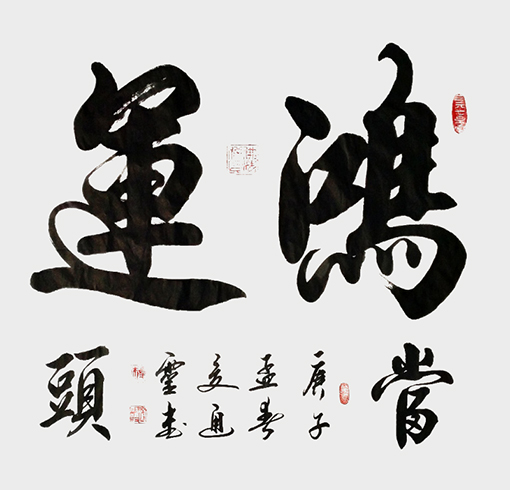 鴻運
當頭
庚子
孟春
通
書